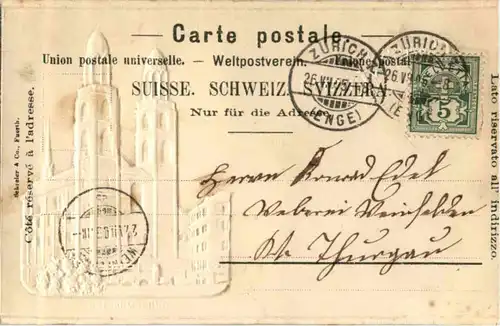 Carte postale.
Union postale universelle. — Weltpostverein. — Unione postale
SUISSE. SCHWEIZ. SVIZZERA.
Nur für die Adresse.
Côté réservé à l'adresse.
Lato riservato all' indirizzo.
ZÜRICH
26.VII.
(ENGE)
ZÜRICH
26.VII.
5
Herrn Konrad Edel
Weberei Weinfelden
Kt. Thurgau